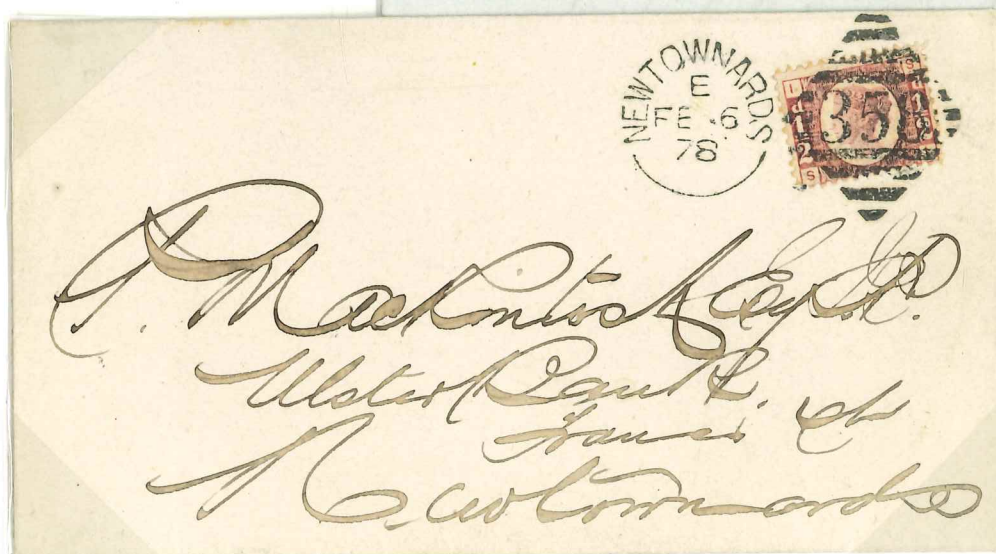 NEWTOWNARDS
E
FE 6
78
35
P. Mackintosh Esq J.P.
Ulster Bank.
Frances St
Newtownards